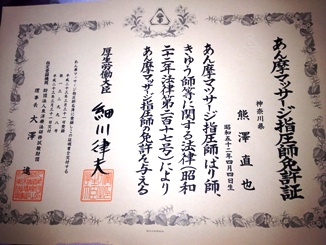 あん摩マッサージ指圧師免許証
神奈川県
熊澤直也
昭和五十二年四月四日生
あん摩マッサージ指圧師、はり師、
きゅう師等に関する法律(昭和
二十二年法律第二百十七号)により
あん摩マッサージ指圧師の免許を与える
厚生労働大臣 細川律夫
理事長 大澤進